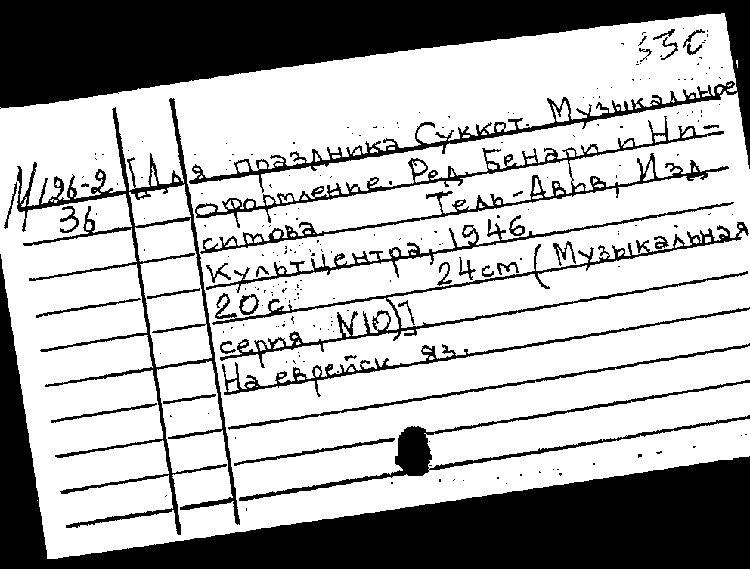 330
М126-2 [Для праздника Суккот. Музыкальное
36 оформление. Ред. Бенари и Ни-
ситова. Тель-Авив, Изд.
Культцентра, 1946.
20 с. 24 cm (Музыкальная
серия, N10)].
На еврейск. яз.